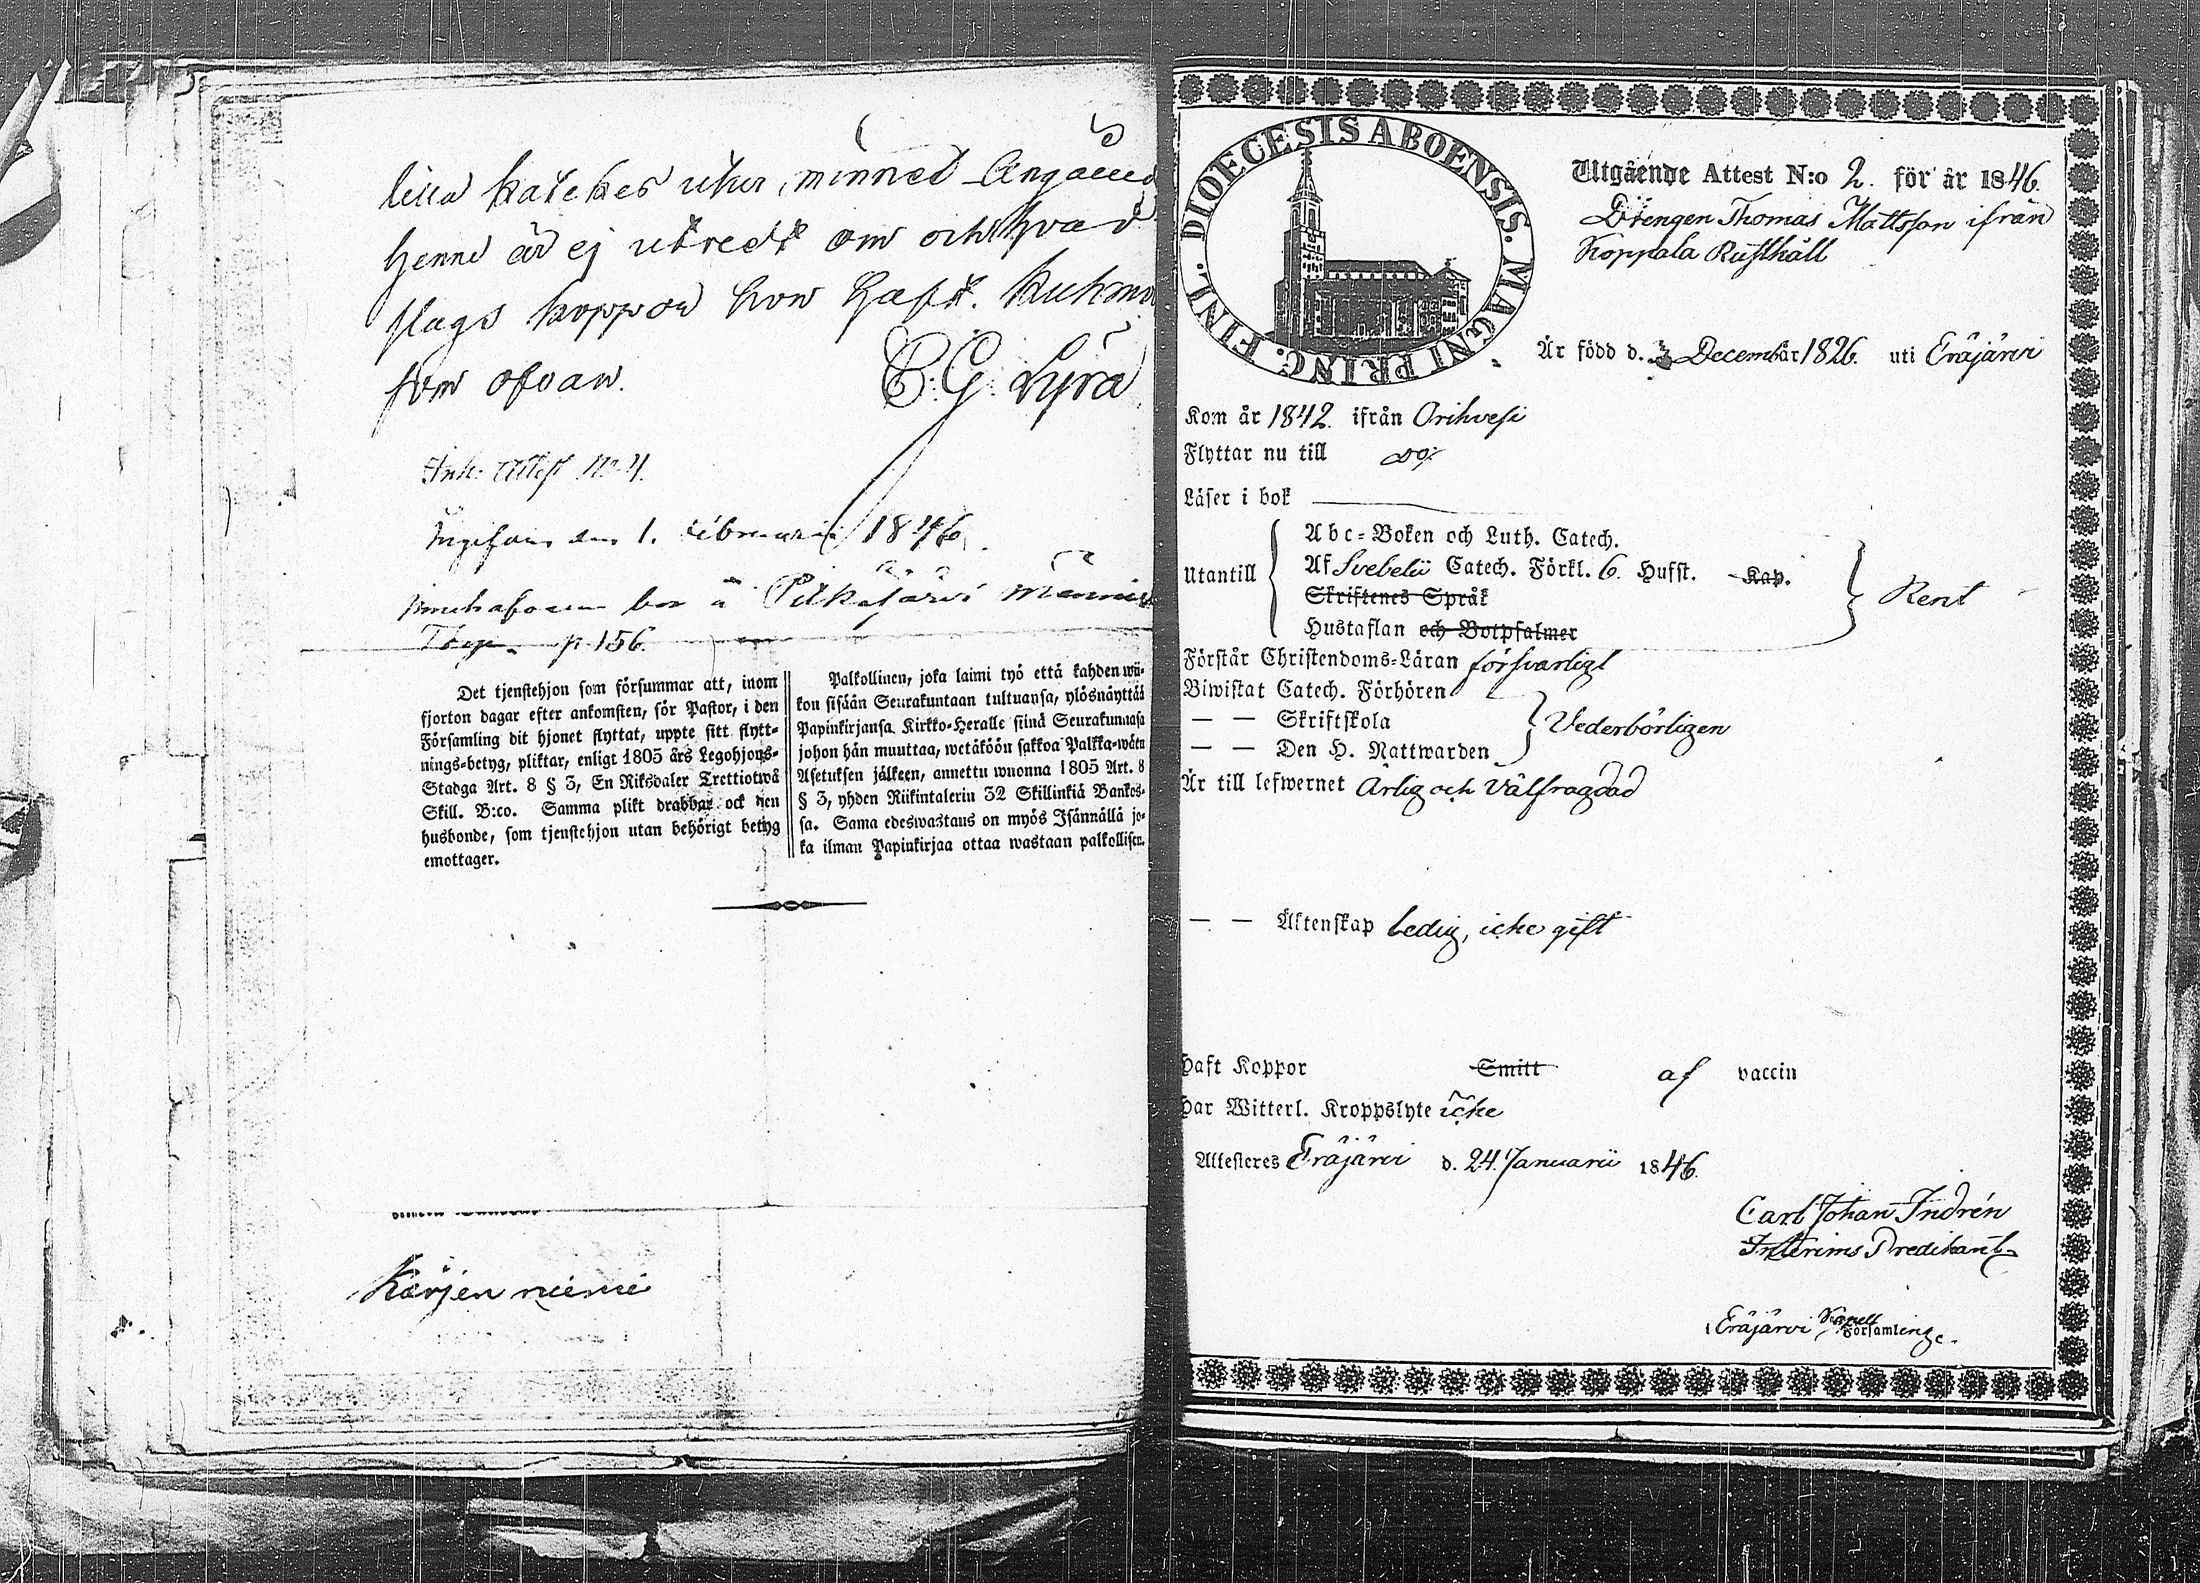 lilla katekes utur minnet Angåend
henne är ej utredt om och hvad
slags koppor hon haft. Kuhmo
som ofvan.
C. G. Lyra
Ink: Attest No 4.
den 1. Februarii 1846
bor å Pitkäjärvi
Torp. p. 156.
Det tjenstehjon som försummar att, inom
fjorton dagar efter ankomsten, för Pastor, i den
Församling dit hjonet flyttat, uppte sitt flytt-
nings-betyg, pliktar, enligt 1805 års Legohjons-
Stadga Art. 8 § 3, En Riksdaler Trettiotwå
Skill. B:co. Samma plikt drabbar ock den
husbonde, som tjenstehjon utan behörigt betyg
emottager.
Palkollinen, joka laimi työ että kahden wii-
kon sisään Seurakuntaan tultuansa, ylösnäyttää
Papinkirjansa Kirkko-Heralle siinä Seurakunnasa
johon hän muuttaa, wetäköön sakkoa Palkka-wäen
Asetuksen jälkeen, annettu wuonna 1805 Art. 8
§ 3, yhden Riikintalerin 32 Skillinkiä Bankos-
sa. Sama edeswastaus on myös Isännällä jo-
ka ilman Papinkirjaa ottaa wastaan palkollisen.
Kärjenniemi
DIOECESIS ABOENSIS. MAGNI PRINC. FINL.
Utgående Attest N:o 2. för år 1846.
Drengen Thomas Mattsson ifrån
Koppala Rusthåll
Är född d. 3 December år 1826. uti Eräjärvi
Kom år 1842. ifrån Orihvesi
Flyttar nu till do:
Läser i bok
Utantill
Abc-Boken och Luth. Catech.
Af Svebelii Catech. Förkl. 6. Hufst. Kap.
Skriftenes Språk
Hustaflan och Botpsalmer
Rent
Förstår Christendoms-Läran försvarligt
Biwistat Catech. Förhören
— — Skriftskola
— — Den H. Nattwarden
Vederbörligen
Är till lefwernet Ärlig och välfrägdad
— — Äktenskap ledig, icke gift
Haft Koppor Smitt af vaccin
Har Witterl. Kroppslyte icke
Attesteres Eräjärvi d. 24. Januarii 1846.
Carl Johan Indrén
Interims Predikant
i Eräjärvi Kapell Församling.